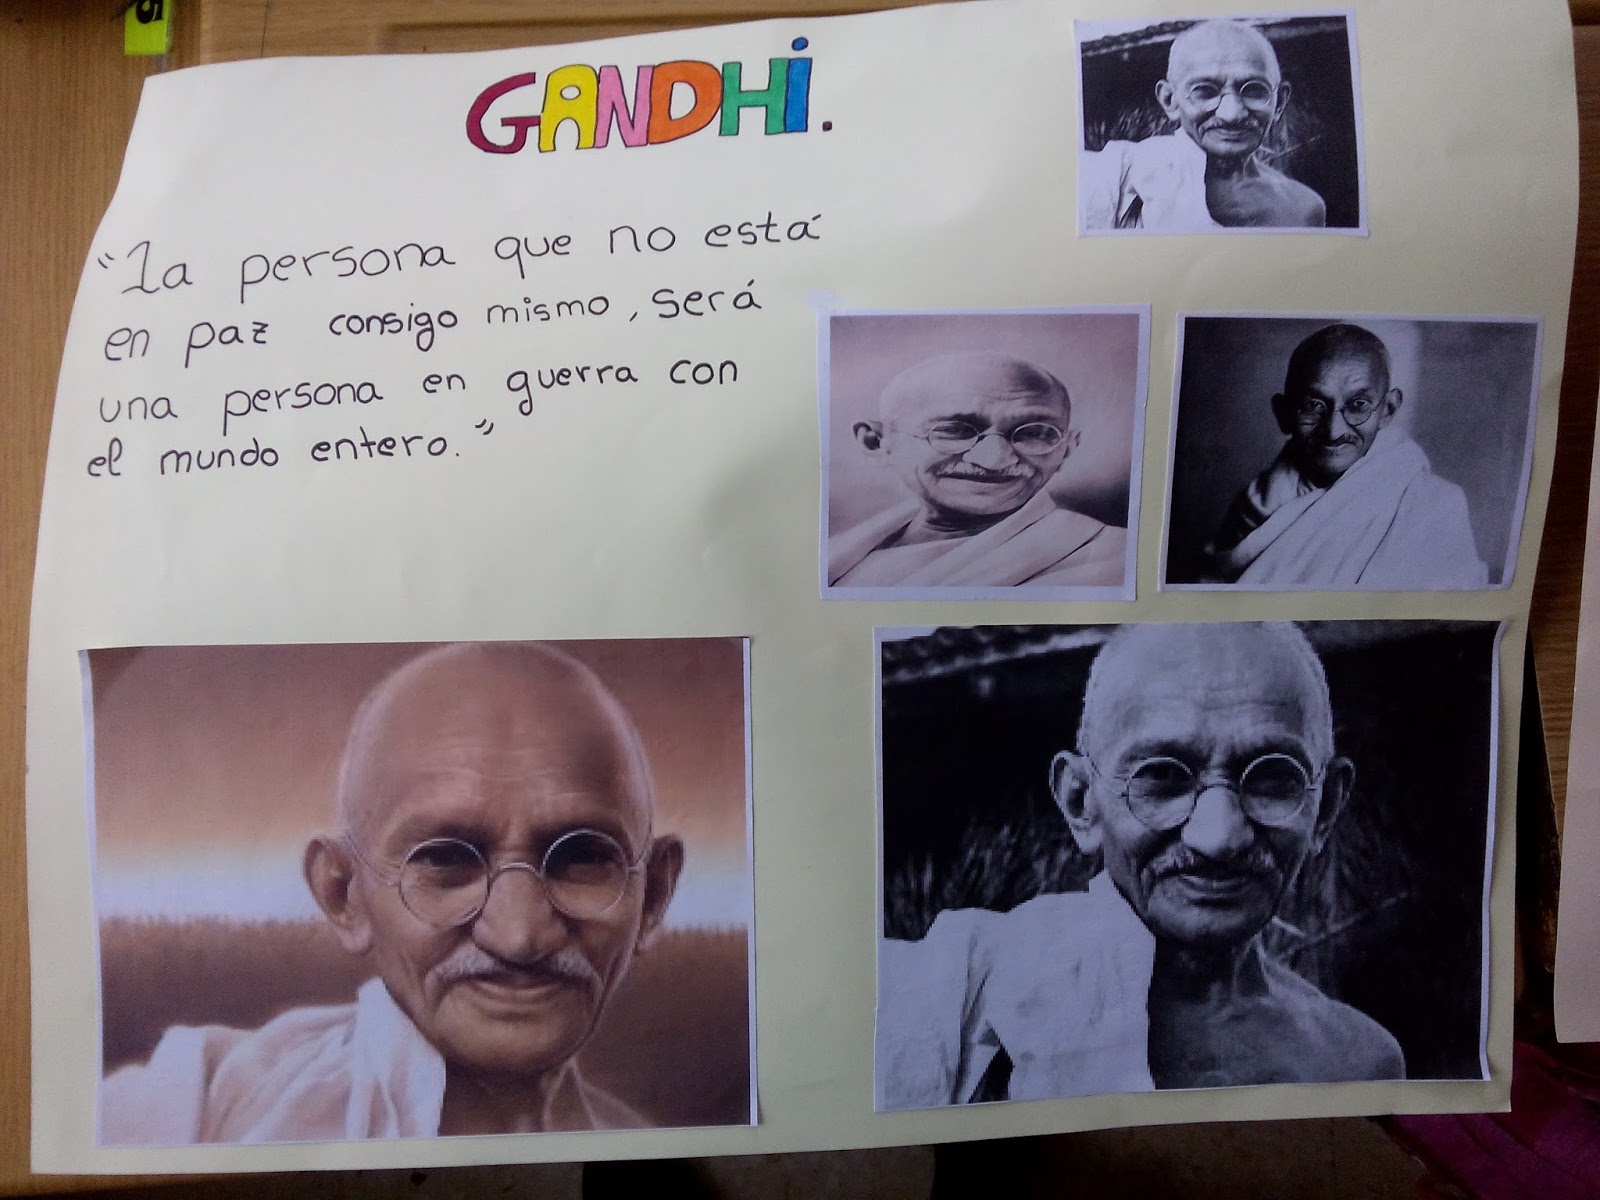 GANDHi.
"La persona que no está
en paz consigo mismo, será
una persona en guerra con
el mundo entero."
5